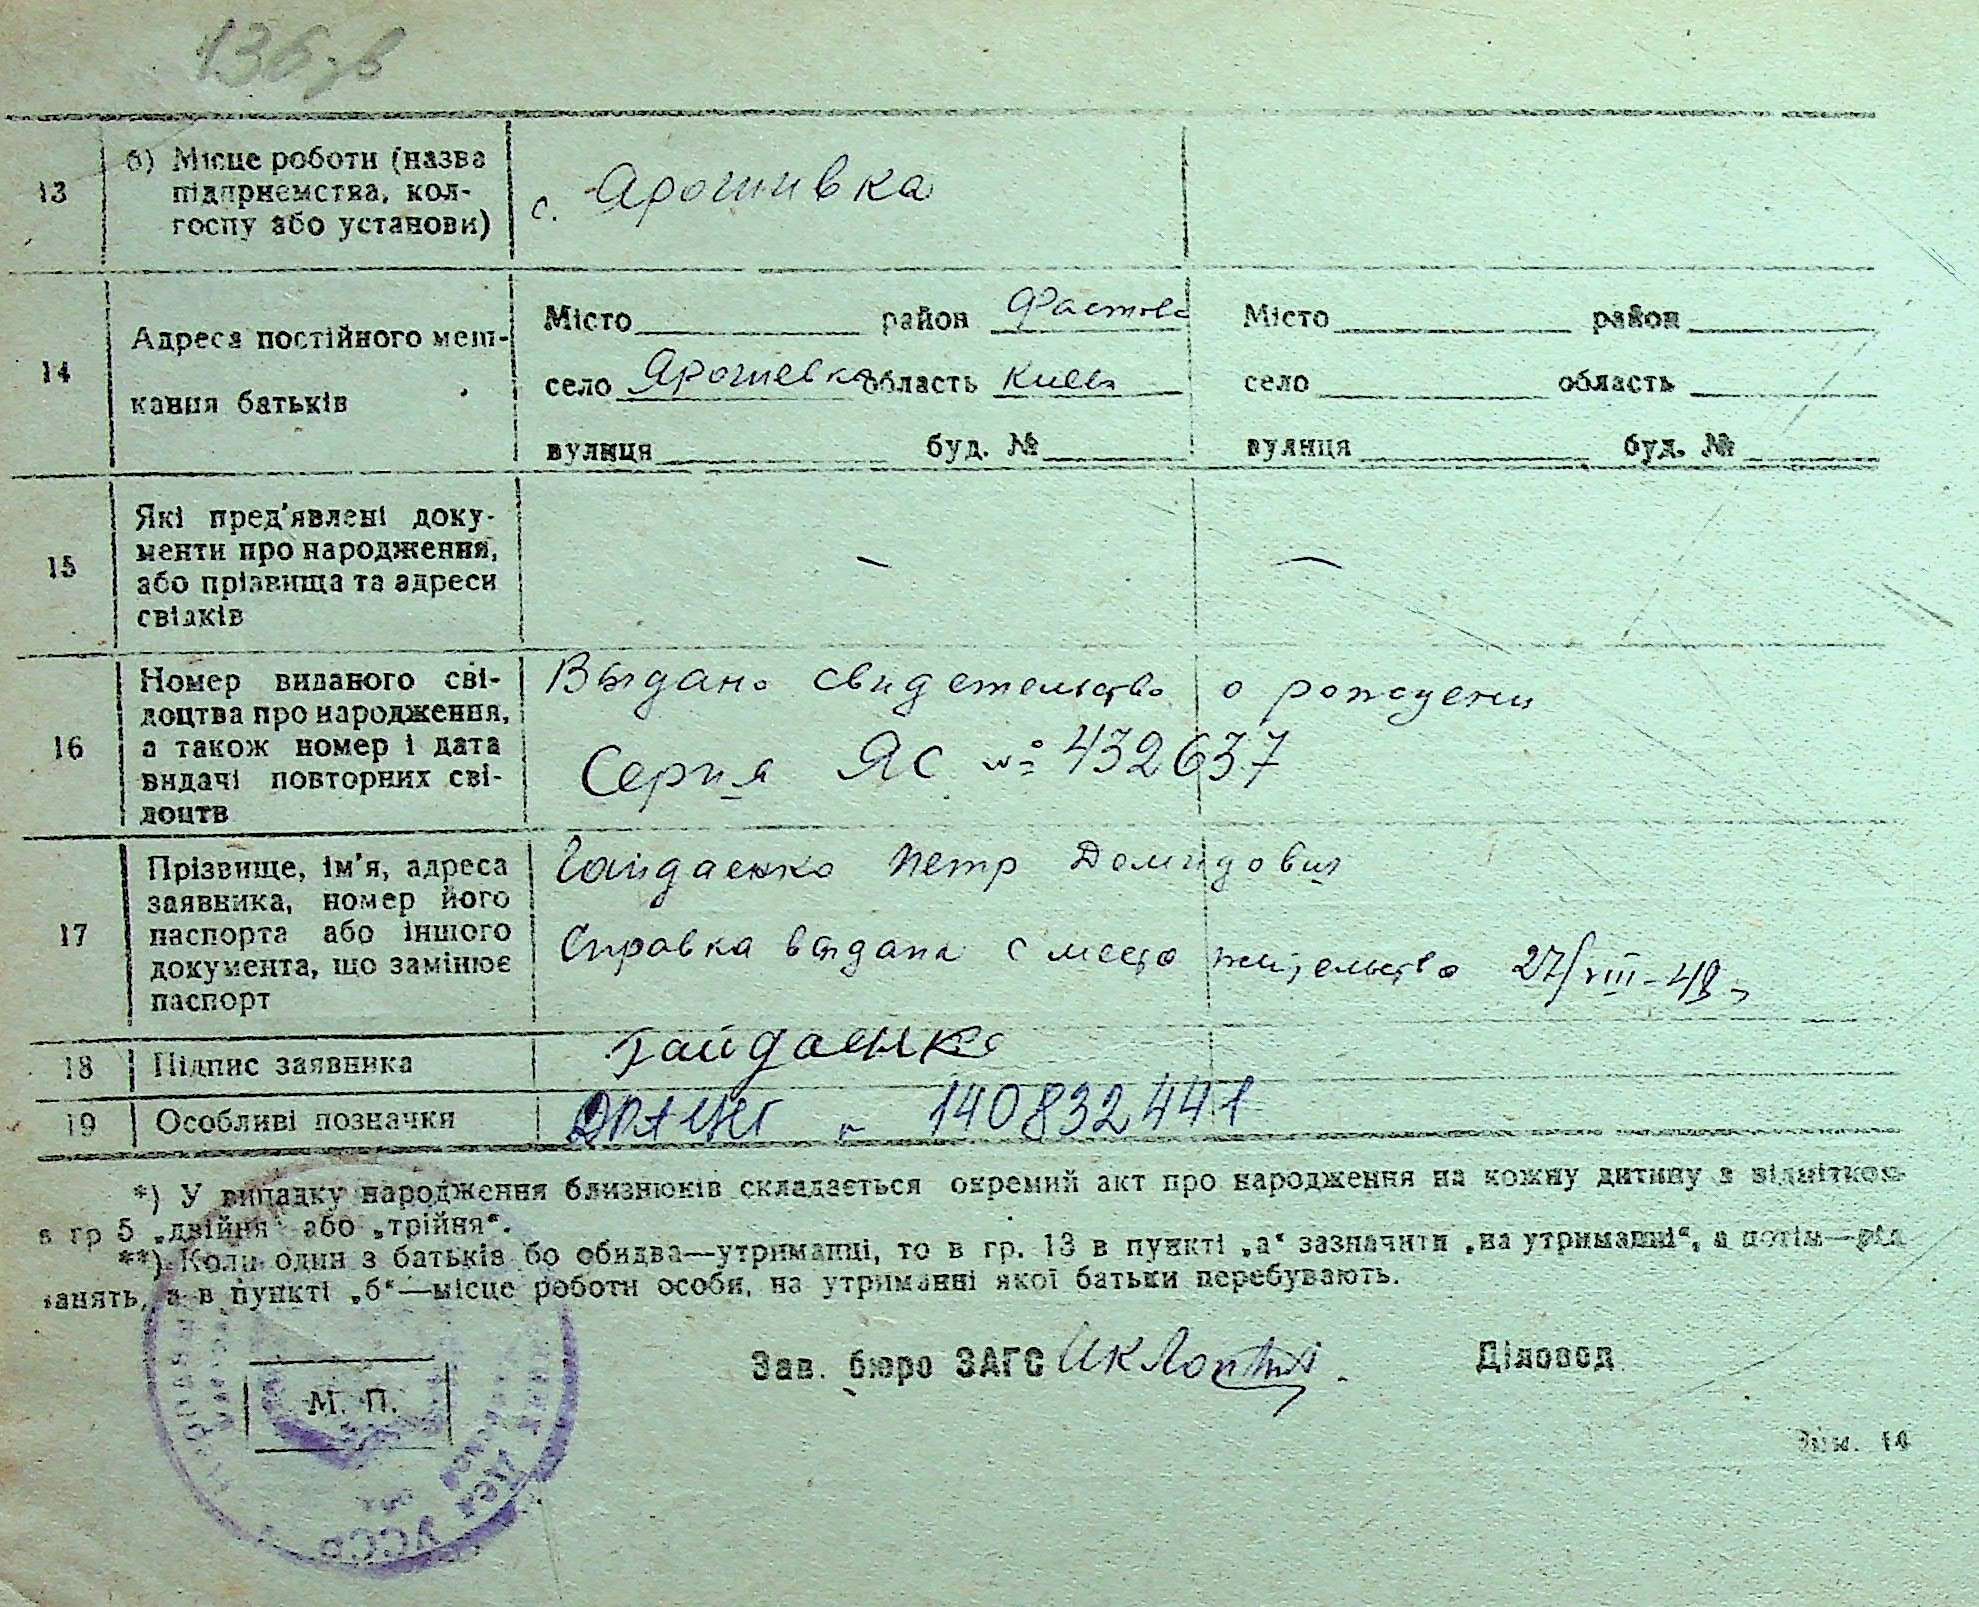 136 зв
13
б) Місце роботи (назва
підприємства, кол-
госпу або установи)
с. Ярошивка
14
Адреса постійного меш-
кання батьків
Місто район Фастов
село Ярошевка область Киев
вулиця буд. №
Місто район
село область
вулиця буд. №
15
Які пред'явлені доку-
менти про народження,
або прізвища та адреси
свідків
— —
16
Номер виданого сві-
доцтва про народження,
а також номер і дата
видачі повторних сві-
доцтв
Выдано свидетельство о рождени
Серия ЯС № 432637
17
Прізвище, ім'я, адреса
заявника, номер його
паспорта або іншого
документа, що замінює
паспорт
Гайдаенко Петр Домидович
Справка выдана с место жительство 27/VIII-48 г
18
Підпис заявника
Гайдаенко
19
Особливі позначки
140832441
*) У випадку народження близнюків складається окремий акт про народження на кожну дитину з відміткою
в гр 5 „двійня“ або „трійня“.
**) Коли один з батьків бо обидва—утриманці, то в гр. 13 в пункті „а“ зазначити „на утриманні“, а потім—рід
занять, а в пункті „б“—місце роботи особи, на утриманні якої батьки перебувають.
Зав. бюро ЗАГС
Діловод
М. П.
УССР
Зам. 14